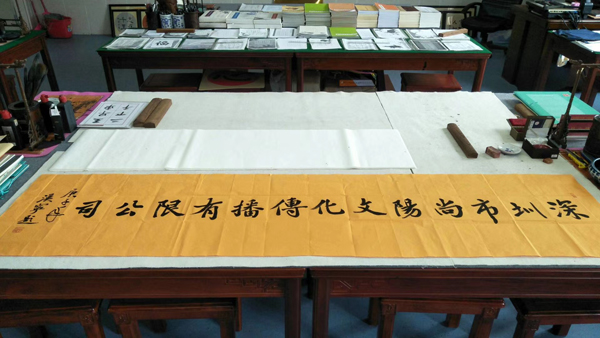 深圳市尚陽文化傳播有限公司